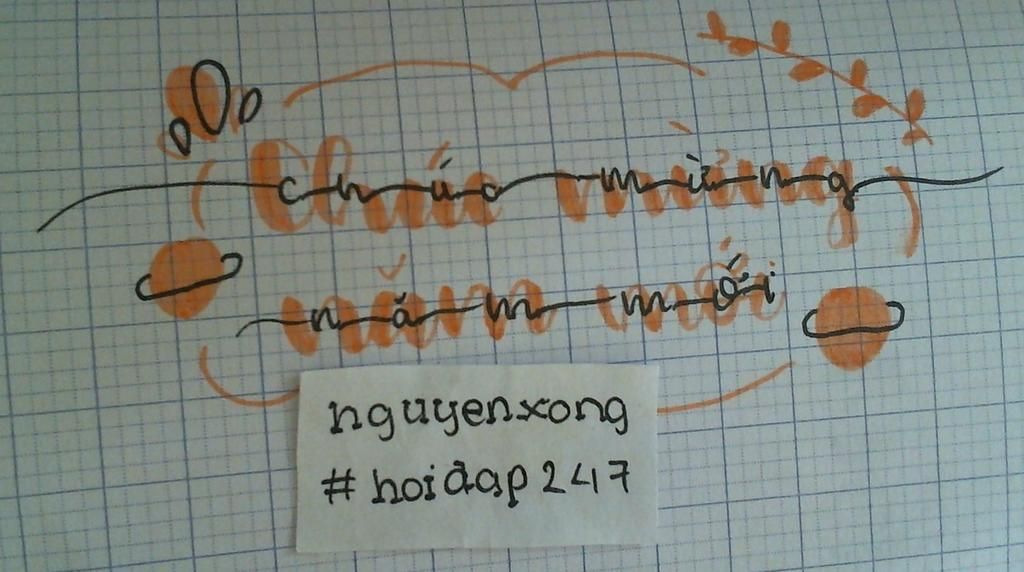 chúc mừng
năm mới
nguyenxong
#hoiđap247